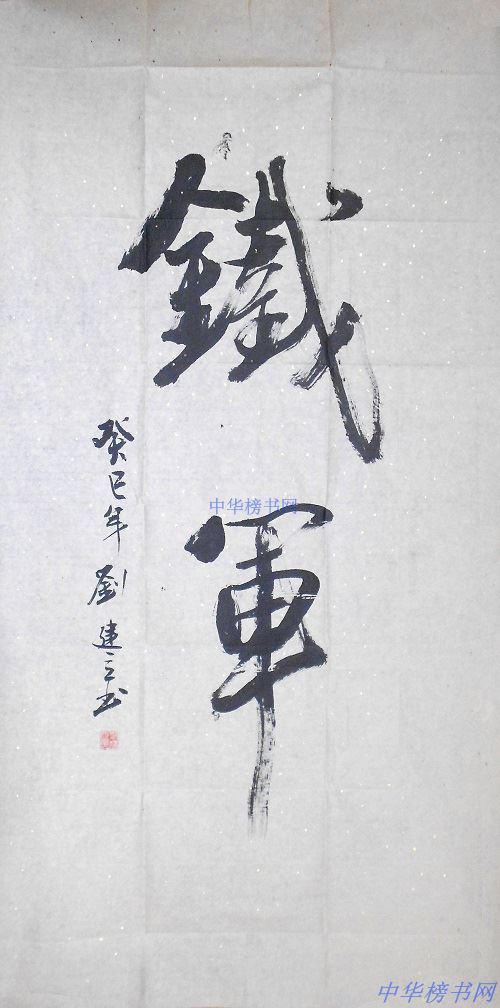 鐵軍
癸巳年 劉建立书
中华榜书网
中华榜书网